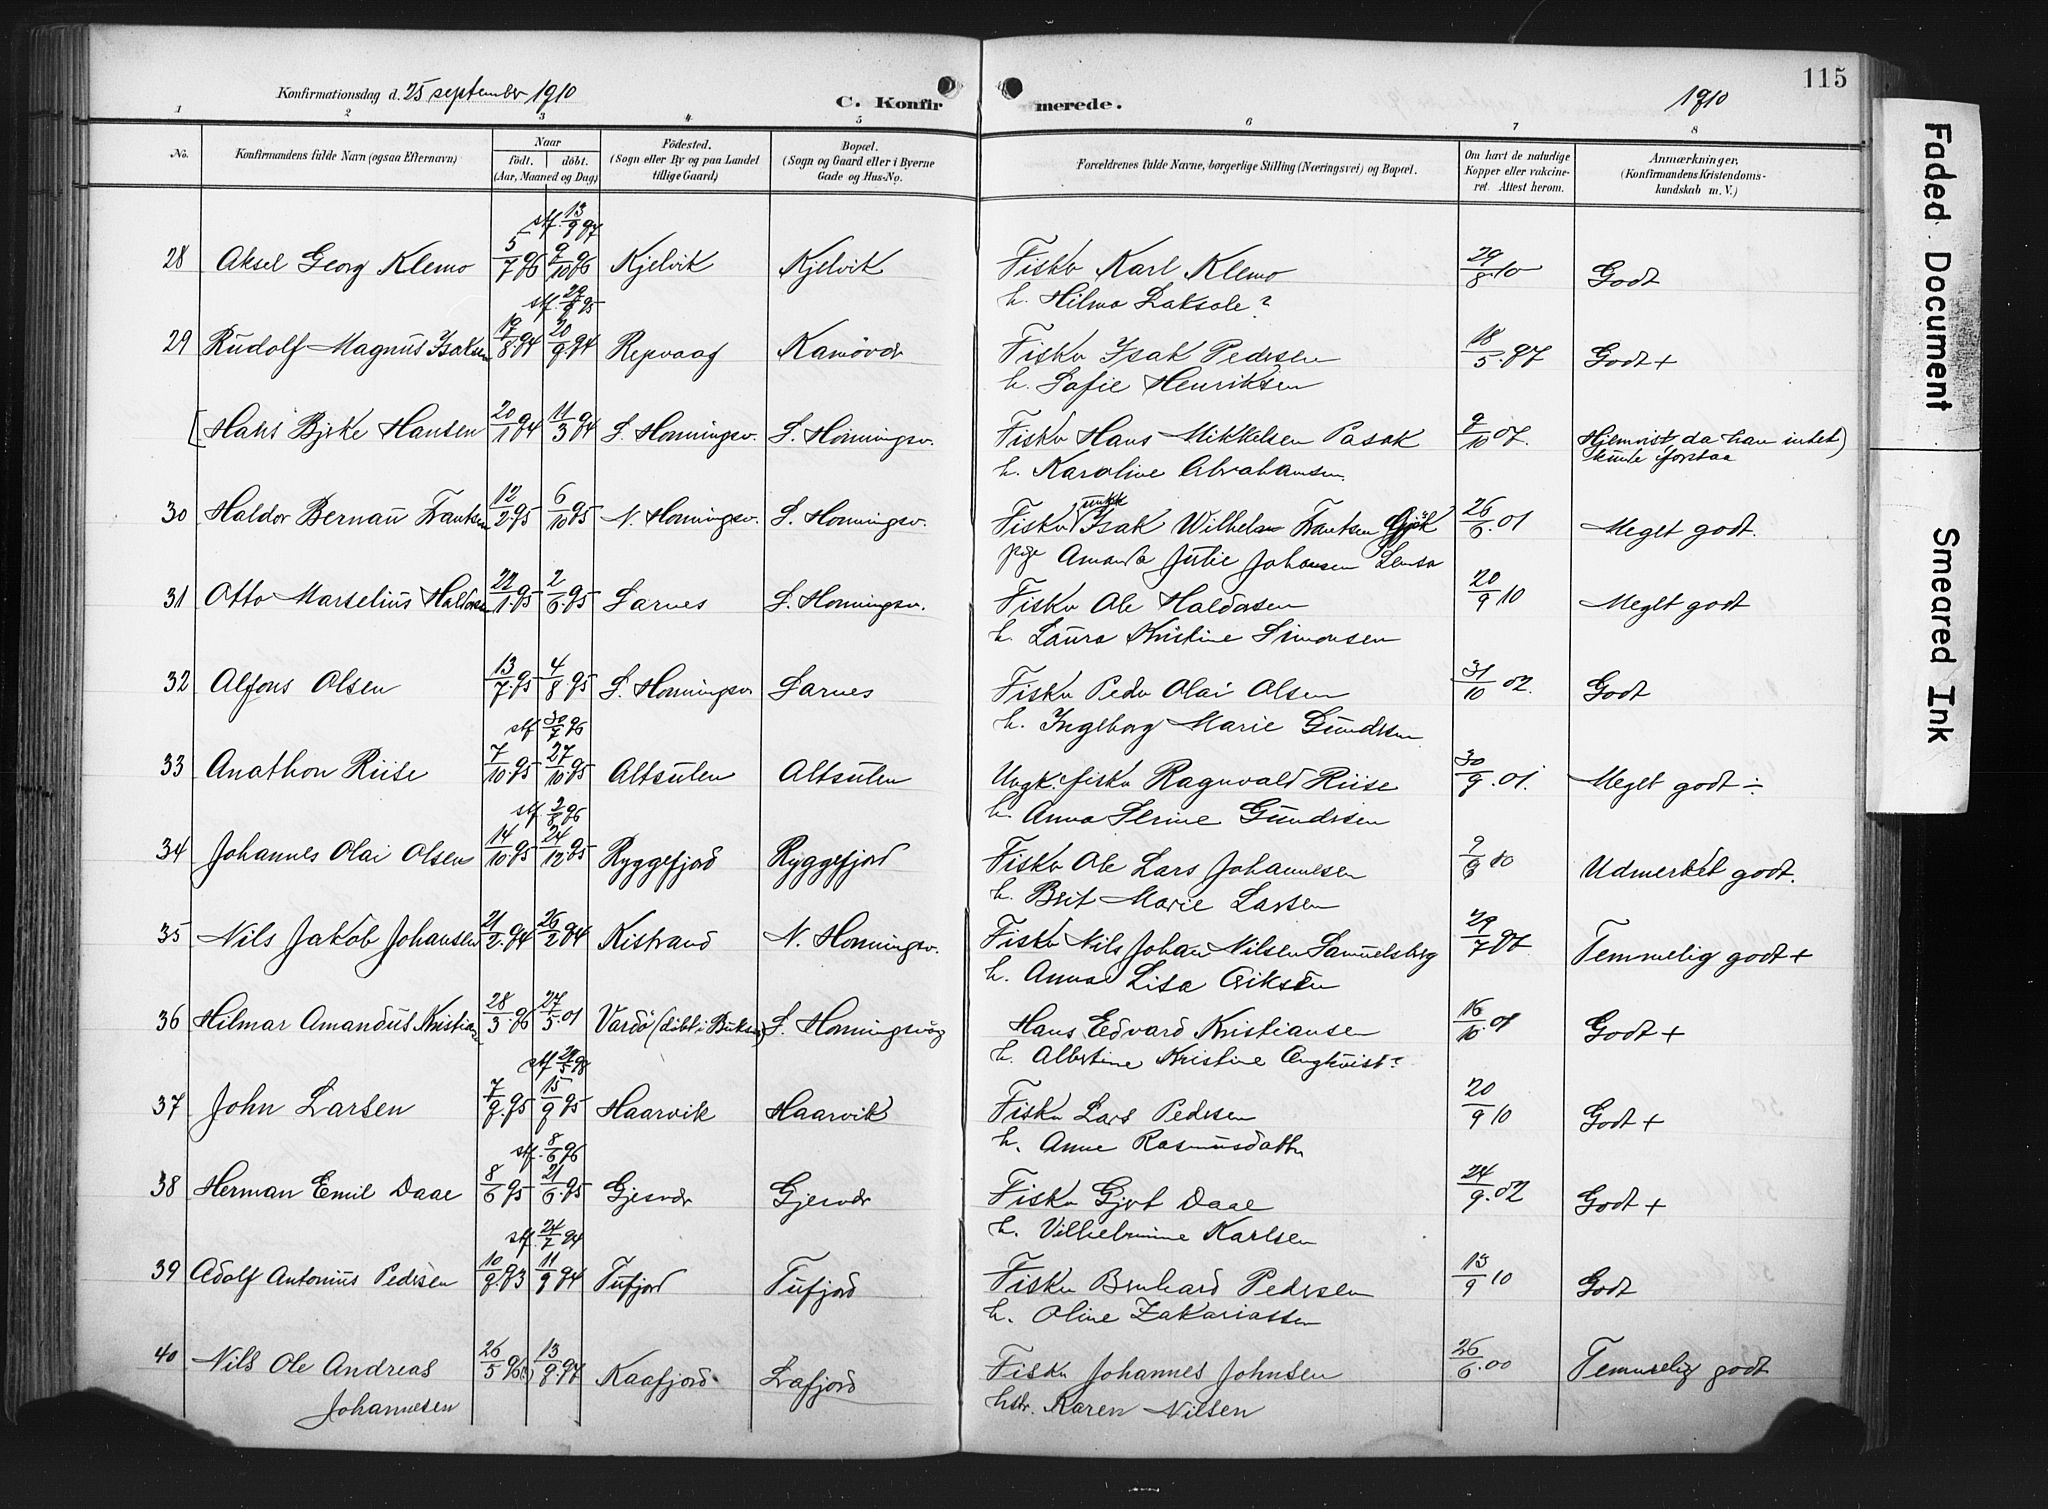 115
Konfirmationsdag d. 25 september 1910
C. Konfirmerede.
1910
1 2 3 4 5 6 7 8
No.
Konfirmandens fulde Navn (ogsaa Efternavn)
Naar
födt. döbt.
(Aar, Maaned og Dag)
Födested.
(Sogn eller By og paa Landet
tillige Gaard)
Bopæl.
(Sogn og Gaard eller i Byerne
Gade og Hus-No.
Forældrenes fulde Navne, borgerlige Stilling (Næringsvei) og Bopæl.
Om havt de naturlige
Kopper eller vakcine-
ret. Attest herom.
Anmærkninger,
(Konfirmandens Kristendoms-
kundskab m. V.)
stf. 13/9 97
28 Aksel Georg Klemo 5/7 96 9/10 96 Kjelvik Kjelvik Fisker Karl Klemo 29/8 10 Godt
h. Hilma Laksole?
29 Rudolf Magnus Isaksen 17/8 94 20/9 94 Repvaag Kamövær Fisker Isak Pedersen 18/5 97 Godt +
h. Sofie Henriksen
[Hans Bjrke Hansen 20/1 94 11/3 94 S. Honningsv. S. Honningsv. Fisker Hans Mikkelsen Pasak 9/10 07. Hjemvist da han intet)
kunde forstaa
h. Karoline Abrahamsen
30 Haldor Bernau Frantsen 12/2 95 6/10 95 N. Honningsv. S. Honningsv. Fisker Isak Wilhelm Frantsen 26/6 01 Meget godt.
pige Amanda Julie Johansen
31 Otto Marselius Haldorsen 22/1 95 2/6 95 Sarnes S. Honningsv. Fisker Ole Haldorsen 20/9 10 Meget godt
h. Laura Kristine Simonsen
32 Alfons Olsen 13/7 95 4/8 95 S. Honningsv Sarnes Fisker Peder Olai Olsen 31/10 02. Godt
h. Ingeborg Marie Gundersen
33 Anathon Riise 7/10 95 27/10 95 Altsulen Altsulen Ungk. fisker Ragnvald Riise 30/9 01. Meget godt ÷
h. Anna Serine Gundersen
34 Johannes Olai Olsen 14/10 95 24/12 95 Ryggefjord Ryggefjord Fisker Ole Lars Johannesen Udmerket godt.
h. Brit Marie Larsen
35 Nils Jakob Johansen 21/2 94 26/2 94 Kistrand N. Honningsv. Fisker Nils Johan Nilsen Samuelsberg 29/7 97 Temmelig godt +
h. Anna Lisa Eriksen
36 Hilmar Amandus Kristian 28/3 96 27/5 01 Vardö S. Honningsvåg Hans Edvard Kristiansen 16/10 01 Godt +
h. Albertine Kristine Engkvist?
37 John Larsen 7/9 95 15/9 95 Haarvik Haarvik Fisker Lars Pedersen 20/9 10 Godt +
h. Anne Rasmusdatter
stf. 8/6 96
38 Herman Emil Daae 8/6 95 21/6 95 Gjesvær Gjesvær Fisker Gjert Daae 24/9 02 Godt +
h. Vilhelmine Karlsen
stf. 24/7 94
39 Adolf Antonius Pedersen 10/9 93 11/9 94 Tufjord Tufjord Fisker Bernhard Pedersen 13/9 10 Godt
h. Oline Zakariassen
40 Nils Ole Andreas 26/5 96 13/9 97 Kaafjord Lafjord Fisker Johannes Johnsen 26/6 00 Temmelig godt
Johannesen
hstr. Karen Nilsen
Faded Document
Smeared Ink